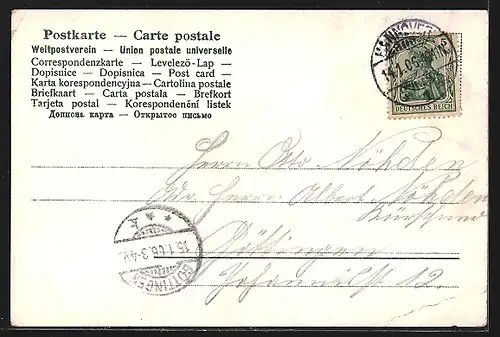 Postkarte — Carte postale
Weltpostverein — Union postale universelle
Correspondenzkarte — Levelező-Lap —
Dopisnice — Dopisnica — Post card —
Karta korespondencyjna — Cartolina postale
Briefkaart — Carta postala — Brefkort
Tarjeta postal — Korespondenční listek
Дописна карта — Открытое письмо
HANNOVER
14.1.06
DEUTSCHES REICH
Herrn Otto Nöhden
Adr. Herrn Albert Nöhden
Kürschner
Göttingen
Johannisstr 12.
15.1.06.3-4N.
GÖTTINGEN